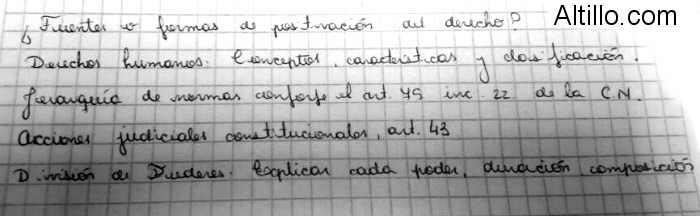 Altillo.com
¿Fuentes o formas de positivación del derecho?
Derechos humanos: Conceptos, características y clasificación.
Jerarquía de normas conforme el art. 75 inc. 22 de la C.N.
Acciones judiciales constitucionales, art. 43
División de Poderes. Explicar cada poder, duración, composición